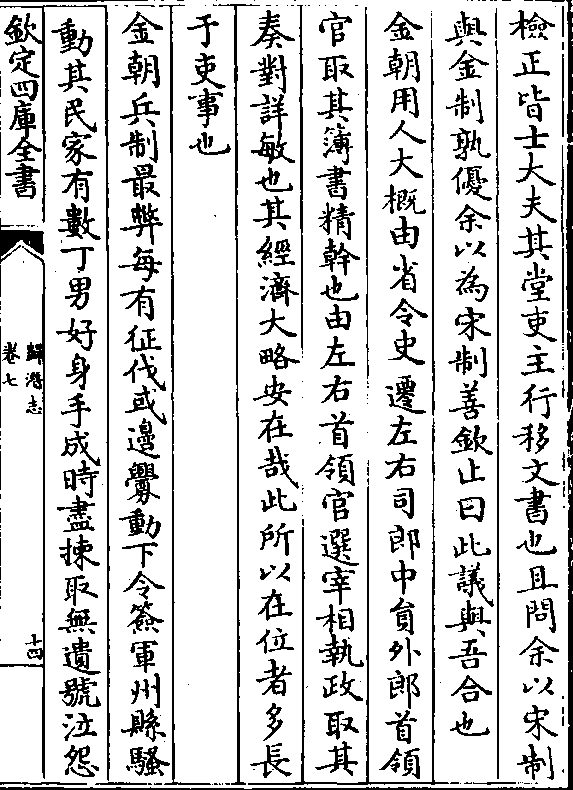 檢正皆士大夫其堂吏主行移文書也且問余以宋制
與金制孰優余以為宋制善欽止曰此議與吾合也
金朝用人大概由省令史遷左右司郎中員外郎首領
官取其簿書精幹也由左右首領官選宰相執政取其
奏對詳敏也其經濟大略安在哉此所以在位者多長
于吏事也
金朝兵制最弊每有征伐或邊釁動下令簽軍州縣騷
動其民家有數丁男好身手成時盡揀取無遺號泣怨
欽定四庫全書
歸潛志
卷七
十四